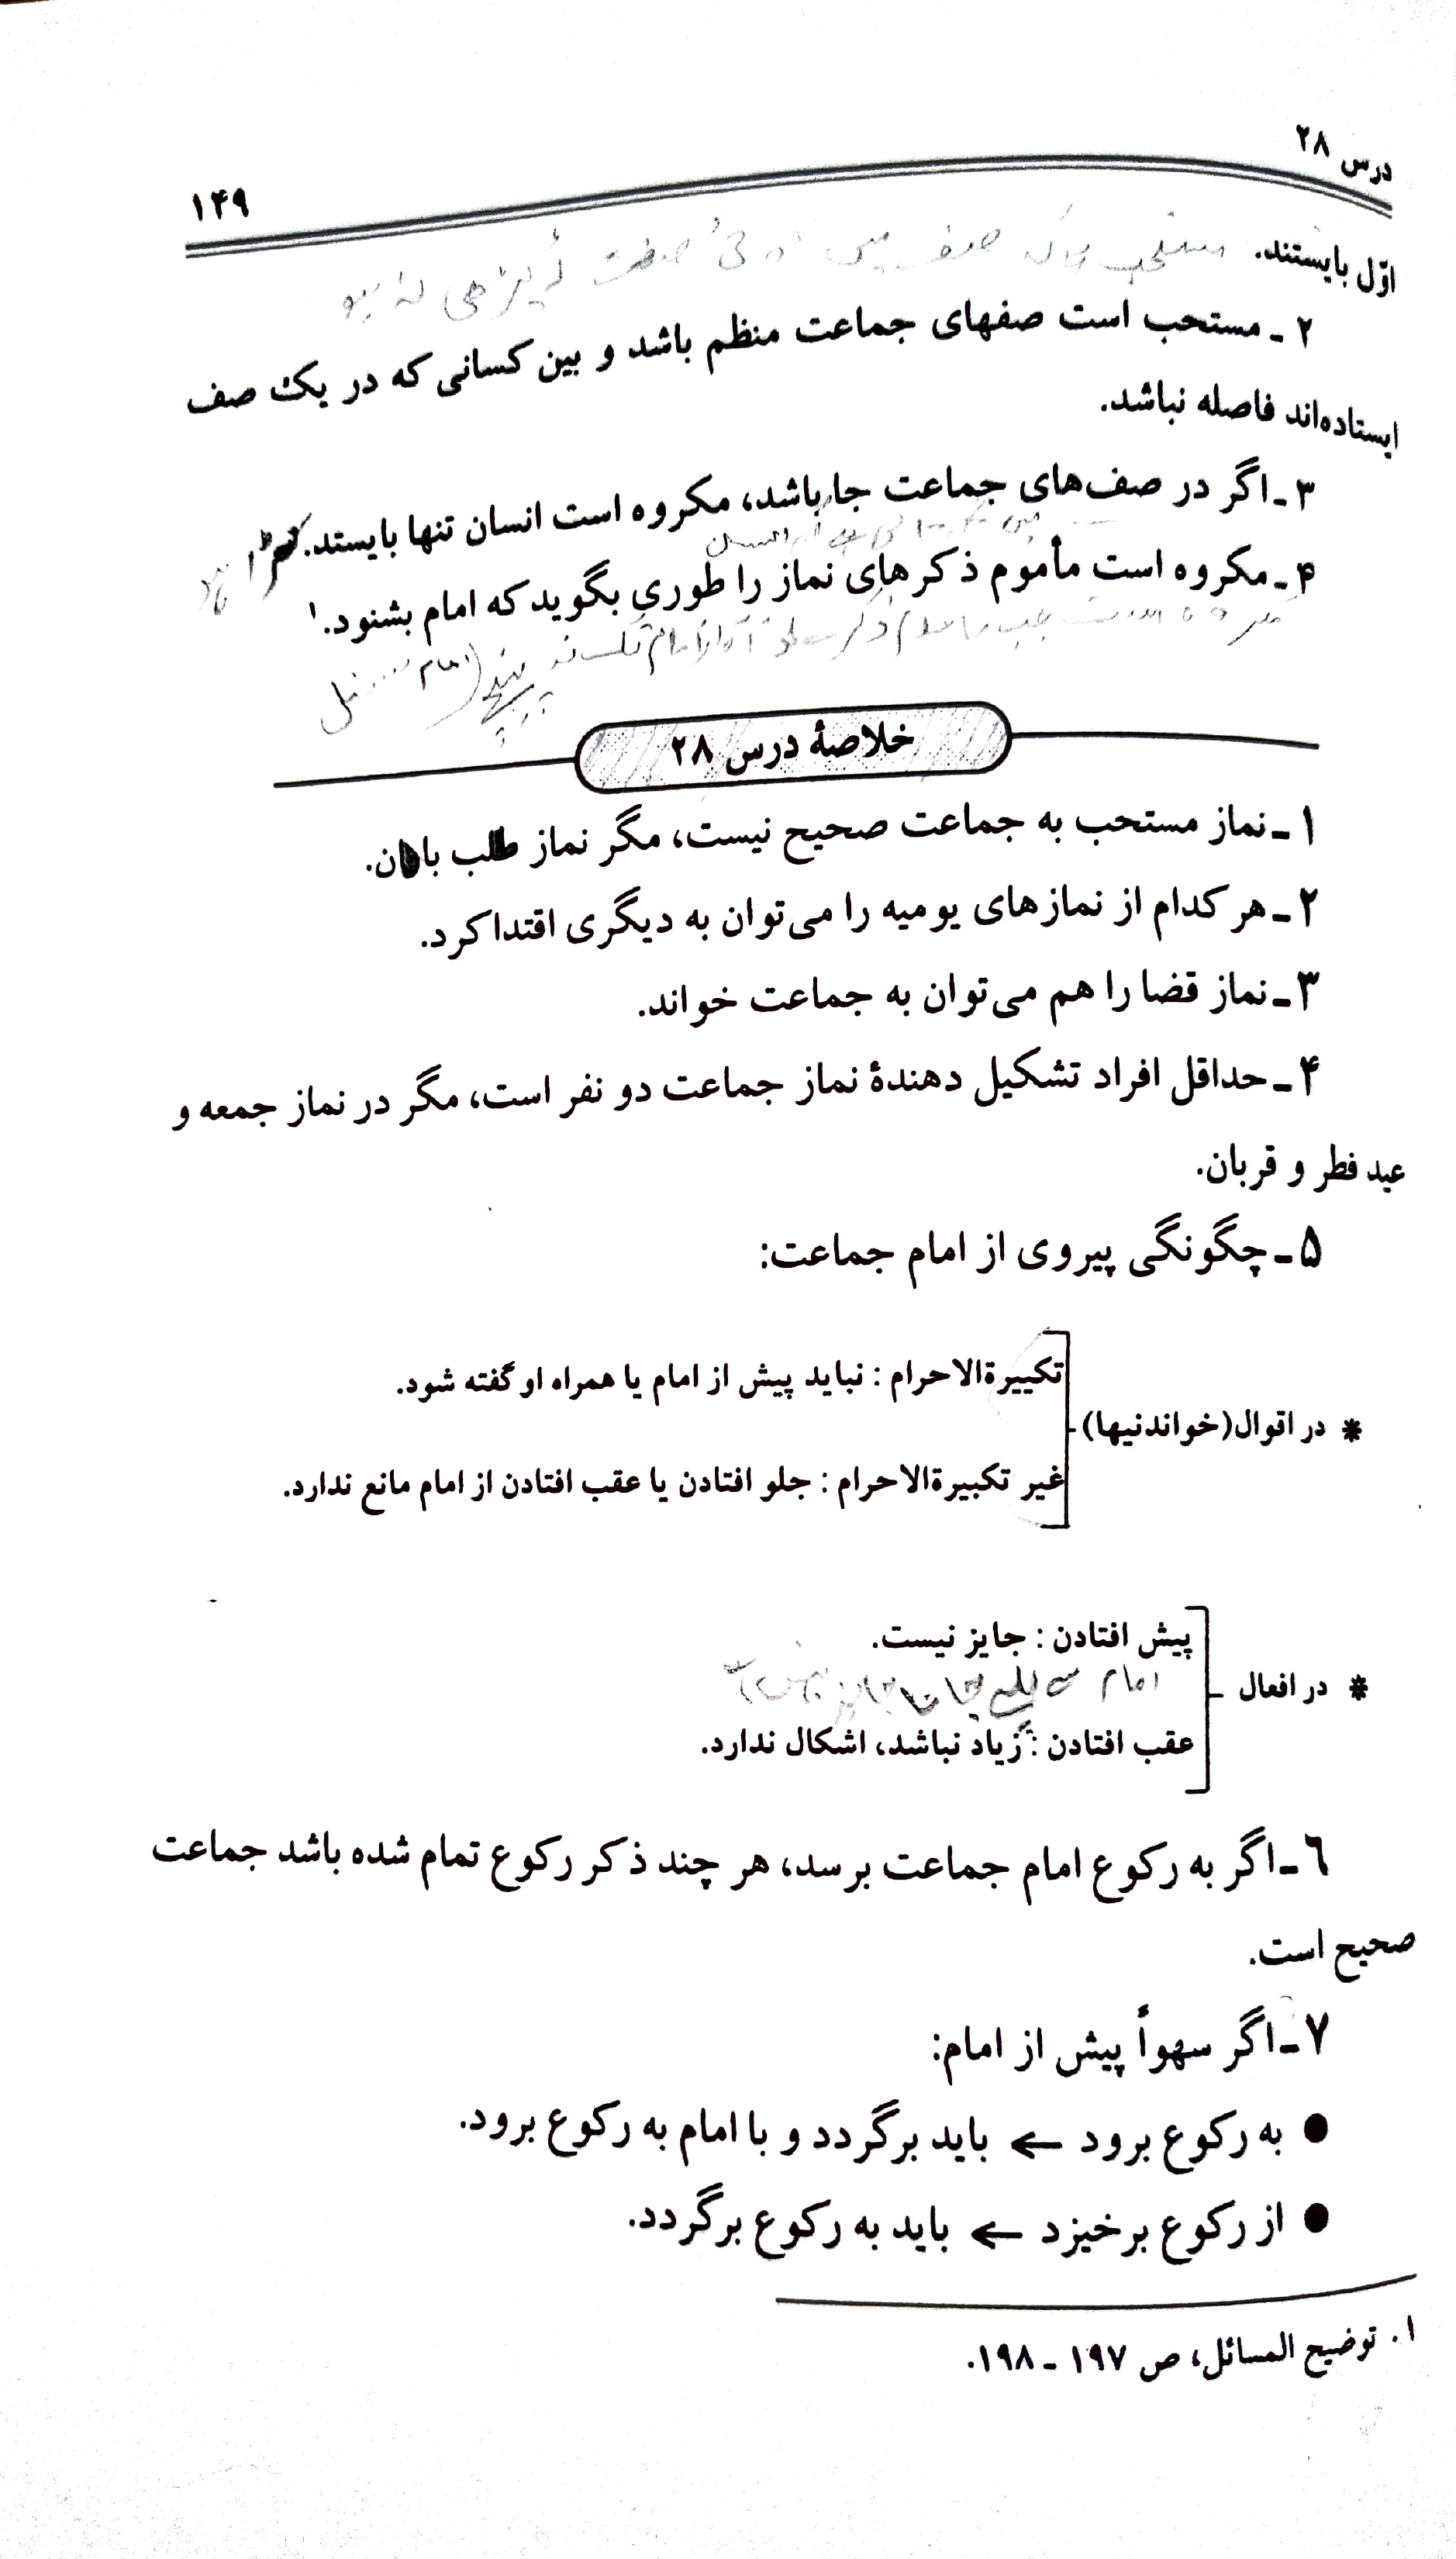 درس ۲۸
۱۴۹
اوّل بایستند.
۲ ـ مستحب است صفهای جماعت منظم باشد و بین کسانی که در یک صف
ایستاده‌اند فاصله نباشد.
۳ ـ اگر در صف‌های جماعت جا باشد، مکروه است انسان تنها بایستد.
۴ ـ مکروه است مأموم ذکرهای نماز را طوری بگوید که امام بشنود.۱
خلاصهٔ درس ۲۸
۱ ـ نماز مستحب به جماعت صحیح نیست، مگر نماز طلب باران.
۲ ـ هر کدام از نمازهای یومیه را می‌توان به دیگری اقتدا کرد.
۳ ـ نماز قضا را هم می‌توان به جماعت خواند.
۴ ـ حداقل افراد تشکیل دهندهٔ نماز جماعت دو نفر است، مگر در نماز جمعه و
عید فطر و قربان.
۵ ـ چگونگی پیروی از امام جماعت:
تکبیرةالاحرام : نباید پیش از امام یا همراه او گفته شود.
* در اقوال(خواندنیها)
غیر تکبیرةالاحرام : جلو افتادن یا عقب افتادن از امام مانع ندارد.
پیش افتادن : جایز نیست.
* در افعال
عقب افتادن : زیاد نباشد، اشکال ندارد.
٦ ـ اگر به رکوع امام جماعت برسد، هر چند ذکر رکوع تمام شده باشد جماعت
صحیح است.
۷ ـ اگر سهواً پیش از امام:
● به رکوع برود ← باید برگردد و با امام به رکوع برود.
● از رکوع برخیزد ← باید به رکوع برگردد.
۱. توضیح المسائل، ص ۱۹۷ ـ ۱۹۸.